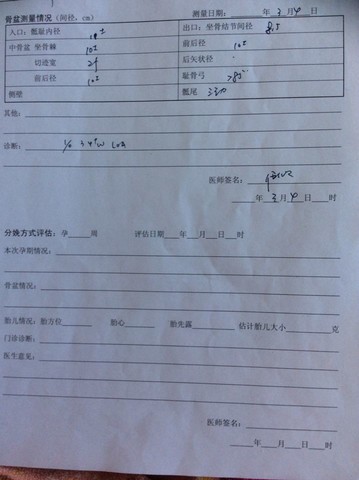 骨盆测量情况（间径，cm） 测量日期：____年 3 月 4 日
入口：骶耻内径 出口：坐骨结节间径 8.5
中骨盆 坐骨棘 10± 前后径 10±
切迹宽 2f 后矢状径 -
前后径 10± 耻骨弓 >85°
侧壁 骶尾
其他：
诊断： 1/0 34+W LOA
医师签名：
____年 3 月 4 日____时
分娩方式评估：孕____周 评估日期____年____月____日____时
本次孕期情况：
骨盆情况：
胎儿情况：胎方位____ 胎心____ 胎先露____ 估计胎儿大小____克
门诊诊断：
医生意见：
医师签名：
____年____月____日____时